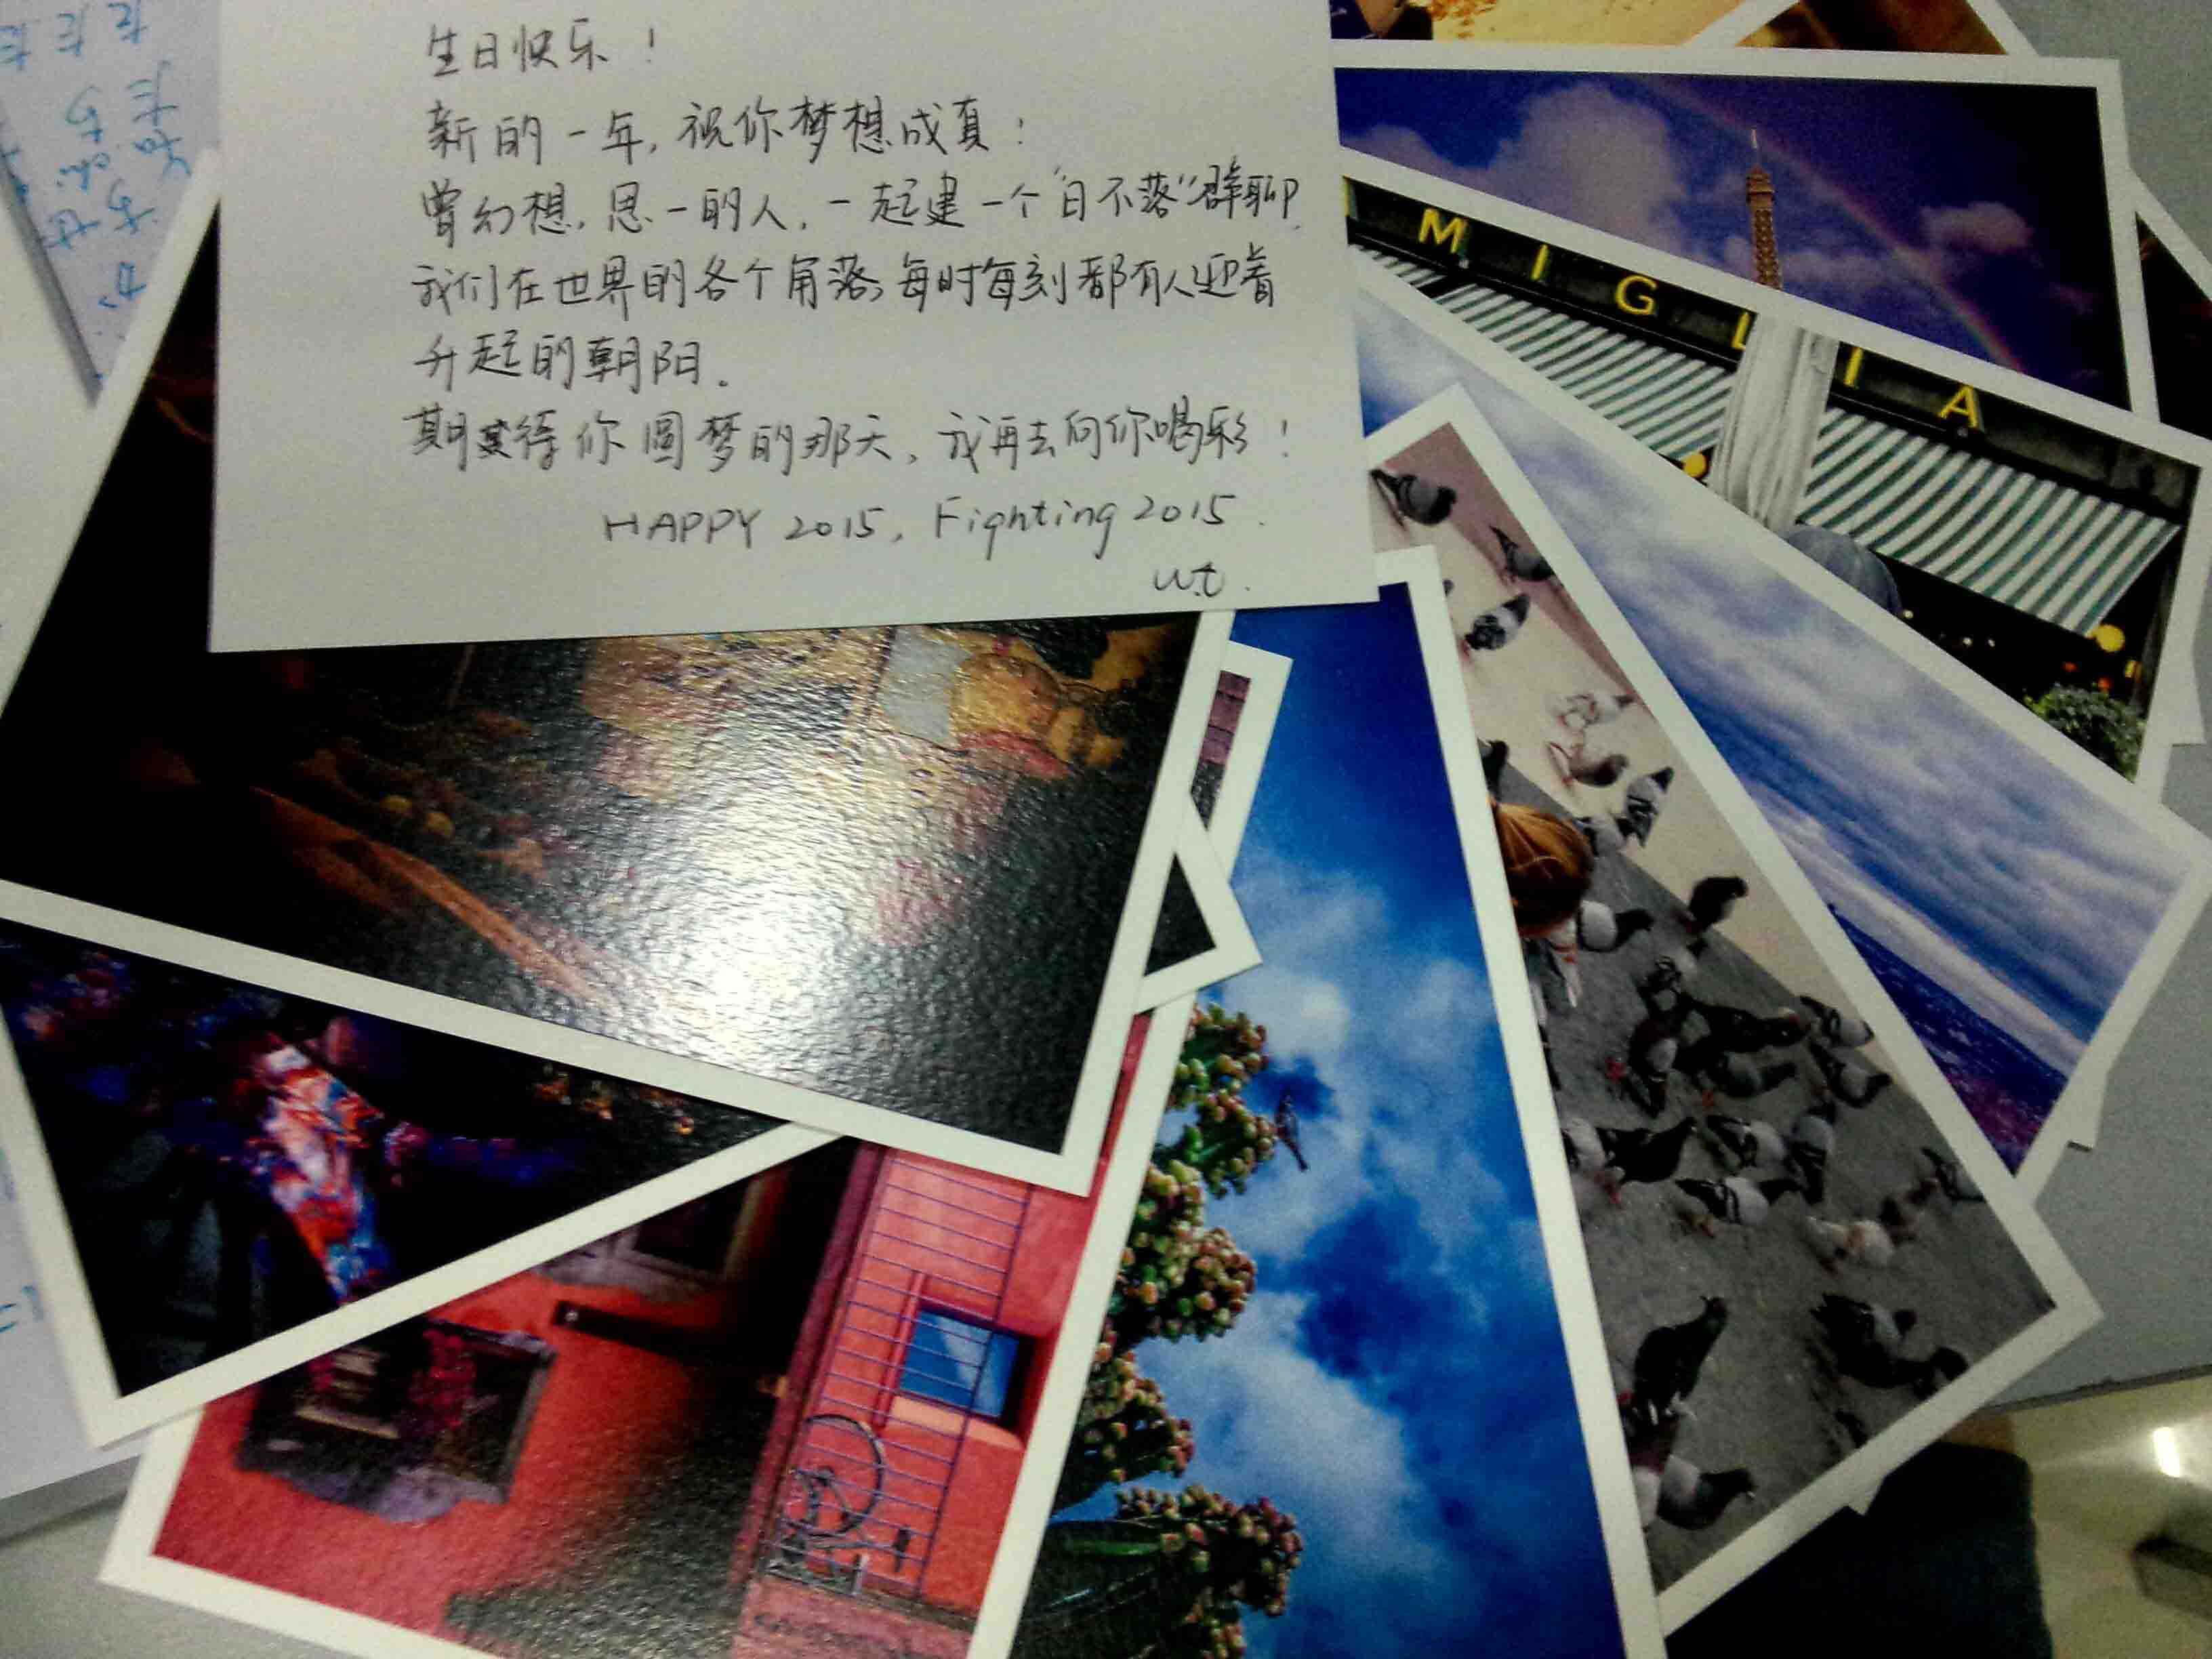 生日快乐！
新的一年，祝你梦想成真！
曾幻想，思一的人，一起建一个"日不落"群聊，
我们在世界的各个角落，每时每刻都有人迎着
升起的朝阳．
期待你圆梦的那天，我再去向你喝彩！
HAPPY 2015, Fighting 2015.
wt.
MIGLIA